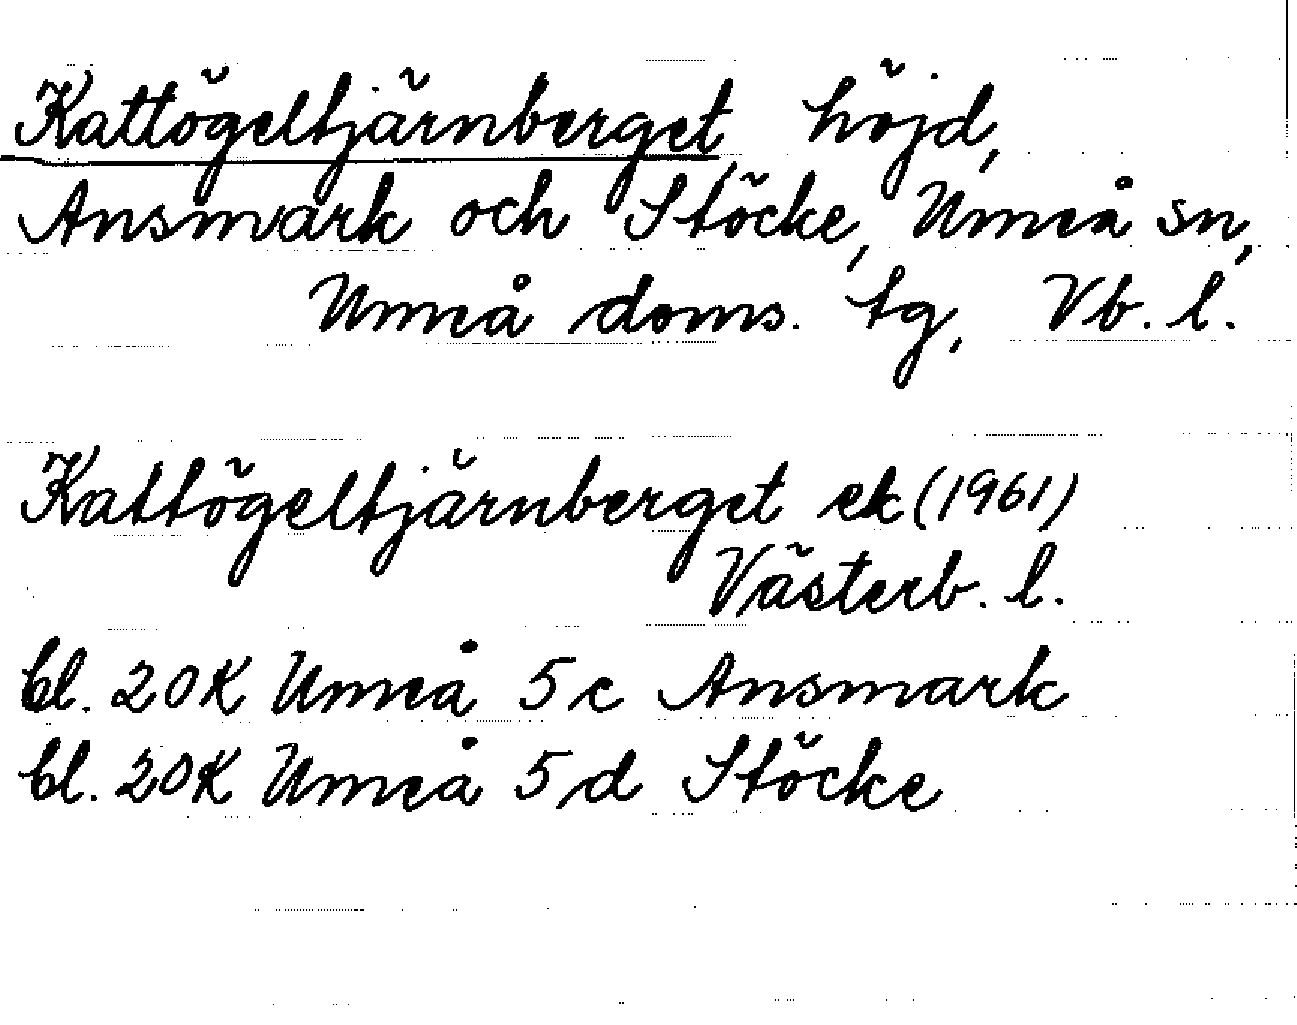 Kattögeltjärnberget, höjd,
Ansmark och Stöcke, Umeå sn,
Umeå doms. tg, Vb. l.
Kattögeltjärnberget ek (1961)
Västerb. l.
bl. 20K Umeå 5c Ansmark
bl. 20K Umeå 5d Stöcke